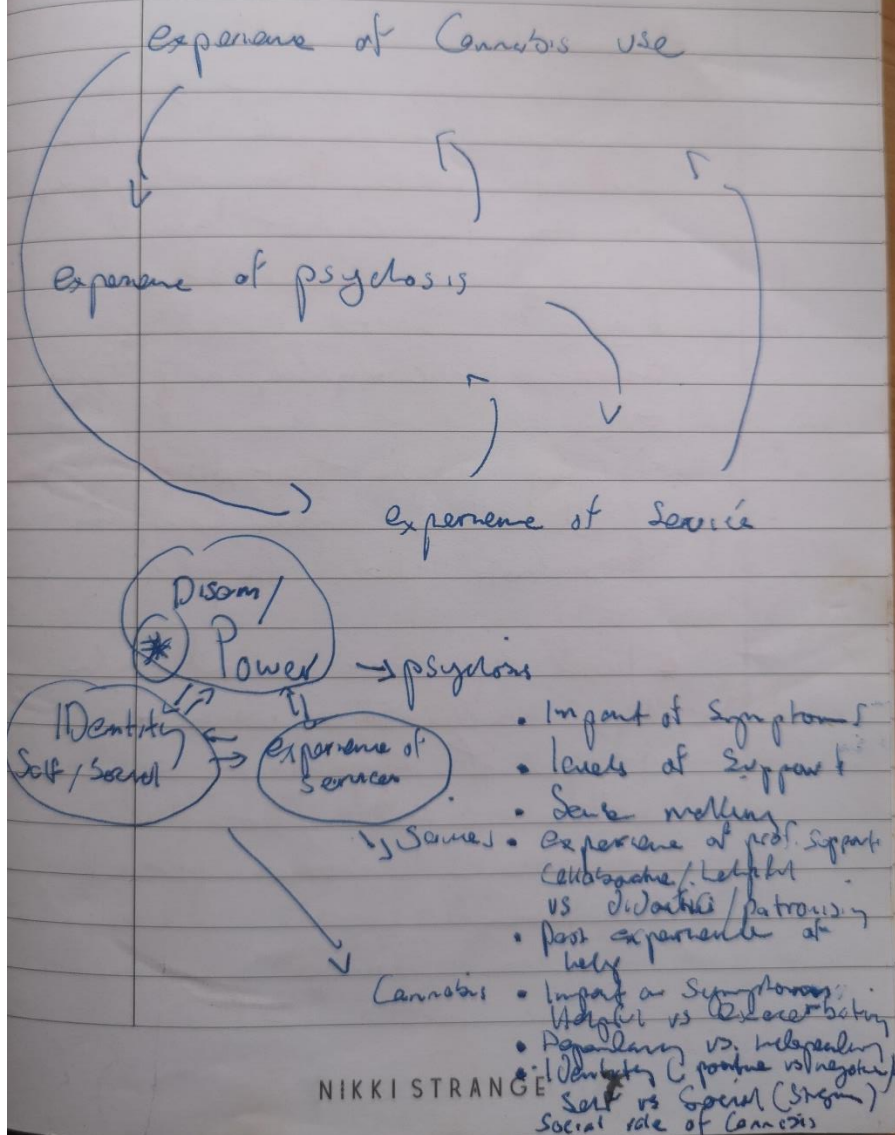 experience of Cannabis use
experience of psychosis
experience of Service
Disem/
Power
→ psychosis
IDentity
Self / Social
experience of
services
• Impact of Symptoms
• levels of Support
• Sense making
↳ Services • experience of prof. support
Collaborative / helpful
vs didactic / patronising
• Past experience of
help
Cannabis • Impact on Symptoms
Helpful vs exacerbating
• Dependency vs. independency
• IDentity (positive vs negative)
Self vs Social (Stigma)
Social role of Cannabis
NIKKI STRANGE